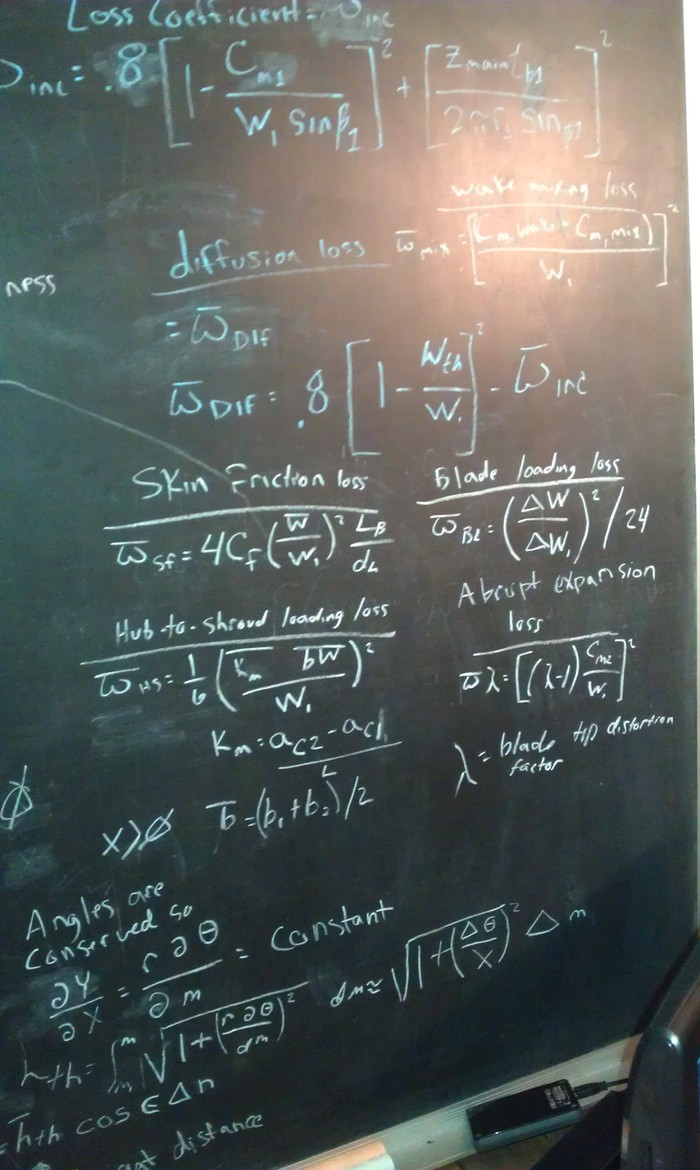 Loss Coefficient = ω̄ inc
ω̄ inc = .8 [1 - C m1 / W₁ sin β₁]² + [Z main t b1 / 2πr₁ sin β1]²
wake mixing loss
ω̄ mix = [(C m,wake - C m,mix) / W₁]²
diffusion loss
ness
= ω̄ DIF
ω̄ DIF = .8 [1 - W th / W₁]² - ω̄ INC
Skin Friction loss
ω̄ SF = 4C f (W̄ / W₁)² L B / d H
Blade loading loss
ω̄ BL = (ΔW / ΔW₁)² / 24
Hub-to-shroud loading loss
ω̄ HS = 1/6 (K̄ m b̄W̄ / W₁)²
Abrupt expansion
loss
ω̄ λ = [(λ-1) C m2 / W₁]²
K m = a c2 - a c1 / L
λ = blade tip distortion
factor
Ø
x>Ø b̄ = (b₁+b₂)/2
Angles are
conserved so
∂Y/∂X = r∂θ/∂m = constant
h th = ∫ m m √1+(r∂θ/dm)² dm ≈ √1+(Δθ/x)² Δm
= h̄ th cos ϵ Δn
distance